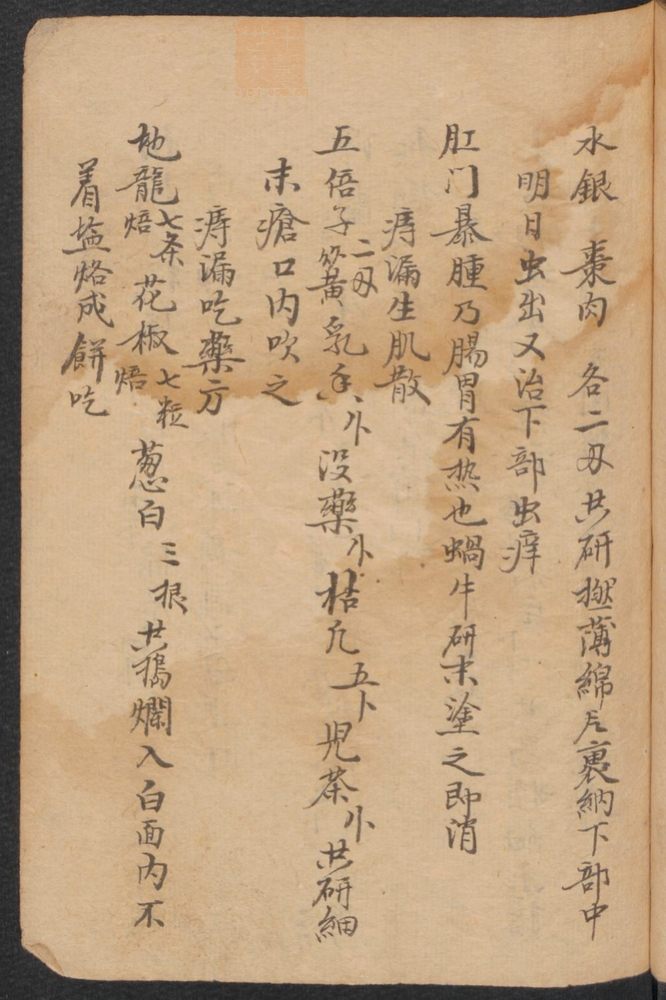 水銀 棗肉 各二刄共研撚薄綿片裹納下部中
明日虫出又治下部虫痒
肛门暴腫乃腸胃有热也蝸牛研末塗之即消
痔漏生肌散
五倍子二刄 乳香 没藥 枯凡五卜 児茶 共研細
末瘡口内吹之
痔漏吃藥方
地龍七条焙 花椒七粒焙 葱白三根共搗爛入白面内不
着盐烙成餅吃